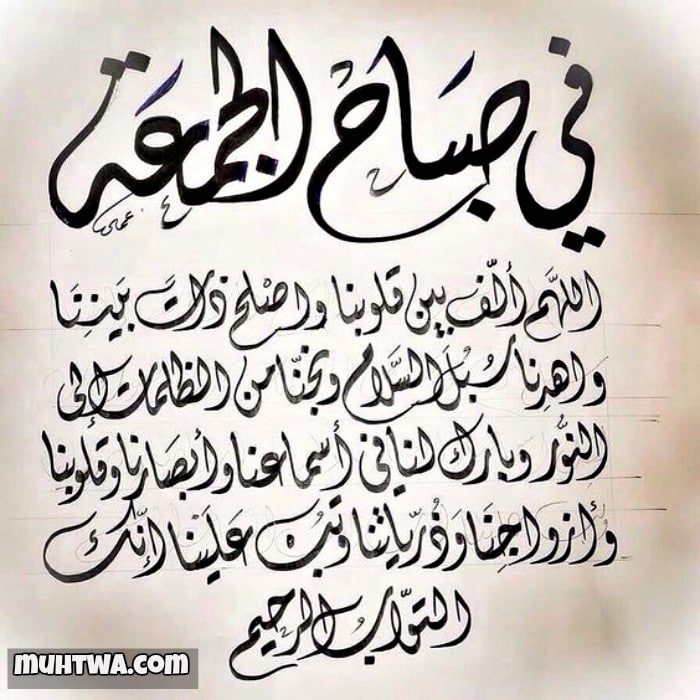 في صباح الجمعة
اللهم ألّف بين قلوبنا واصلح ذات بيننا
واهدنا سُبُل السَّلام ونجّنا من الظلمات إلى
النوُّر وبارك لنا في أسماعنا وأبصارنا وقلوبنا
وأزواجنا وذُرّياتنا وتب علينا إنّك
التوّاب الرحيم
MUHTWA.COM